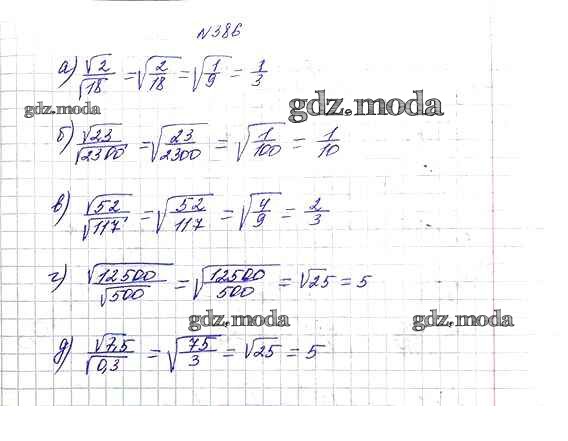 №386
а) √2/√18 = √(2/18) = √(1/9) = 1/3
gdz.moda
gdz.moda
б) √23/√2300 = √(23/2300) = √(1/100) = 1/10
в) √52/√117 = √(52/117) = √(4/9) = 2/3
г) √12500/√500 = √(12500/500) = √25 = 5
gdz.moda
gdz.moda
д) √7,5/√0,3 = √(75/3) = √25 = 5